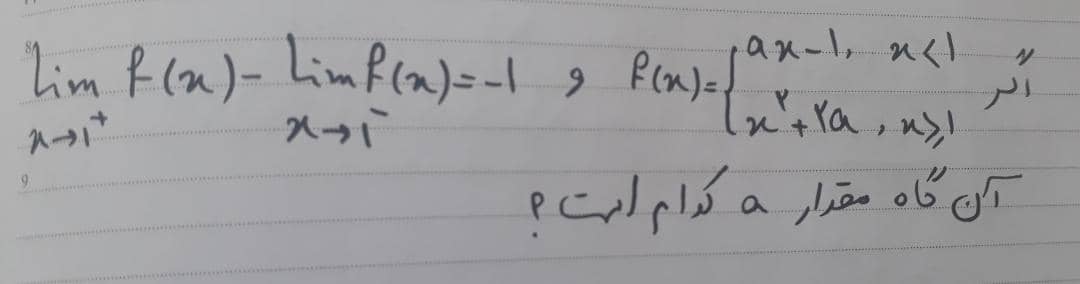 اگر f(x)={ax-1, x<1 ; x²+۲a, x≥1 و lim f(x) - lim f(x) = -1
x→1⁺ x→1⁻
آن گاه مقدار a کدام است؟
8
9